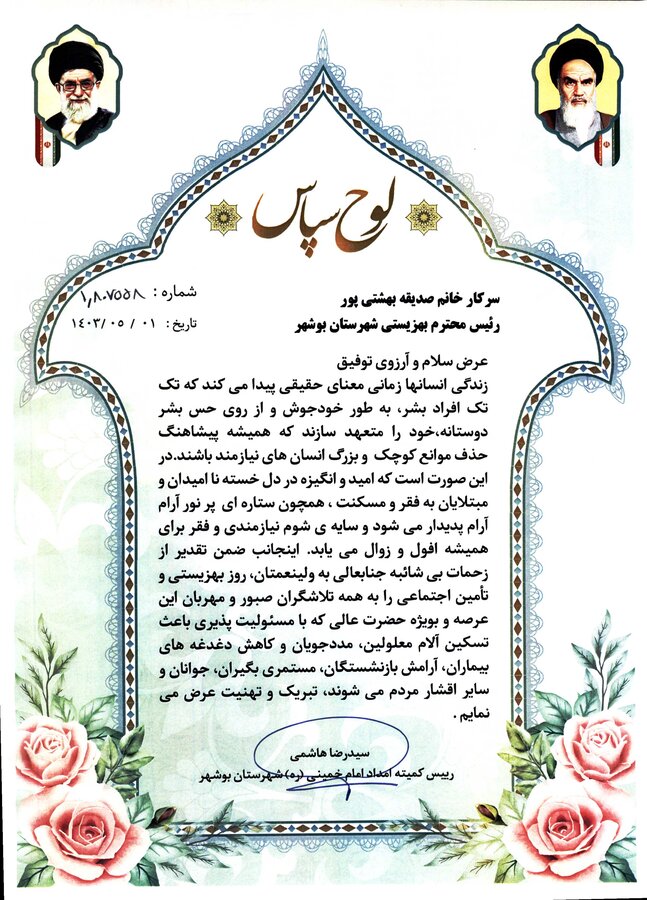 لوح سپاس
سرکار خانم صدیقه بهشتی پور
شماره : ۱,۸۰۷۵۵۸
رئیس محترم بهزیستی شهرستان بوشهر
تاریخ : ۰۱ / ۰۵ /۱٤۰۳
عرض سلام و آرزوی توفیق
زندگی انسانها زمانی معنای حقیقی پیدا می کند که تک
تک افراد بشر، به طور خودجوش و از روی حس بشر
دوستانه،خود را متعهد سازند که همیشه پیشاهنگ
حذف موانع کوچک و بزرگ انسان های نیازمند باشند.در
این صورت است که امید و انگیزه در دل خسته نا امیدان و
مبتلایان به فقر و مسکنت ، همچون ستاره ای پر نور آرام
آرام پدیدار می شود و سایه ی شوم نیازمندی و فقر برای
همیشه افول و زوال می یابد. اینجانب ضمن تقدیر از
زحمات بی شائبه جنابعالی به ولینعمتان، روز بهزیستی و
تأمین اجتماعی را به همه تلاشگران صبور و مهربان این
عرصه و بویژه حضرت عالی که با مسئولیت پذیری باعث
تسکین آلام معلولین، مددجویان و کاهش دغدغه های
بیماران، آرامش بازنشستگان، مستمری بگیران، جوانان و
سایر اقشار مردم می شوند، تبریک و تهنیت عرض می
نمایم .
سیدرضا هاشمی
رییس کمیته امداد امام خمینی (ره) شهرستان بوشهر